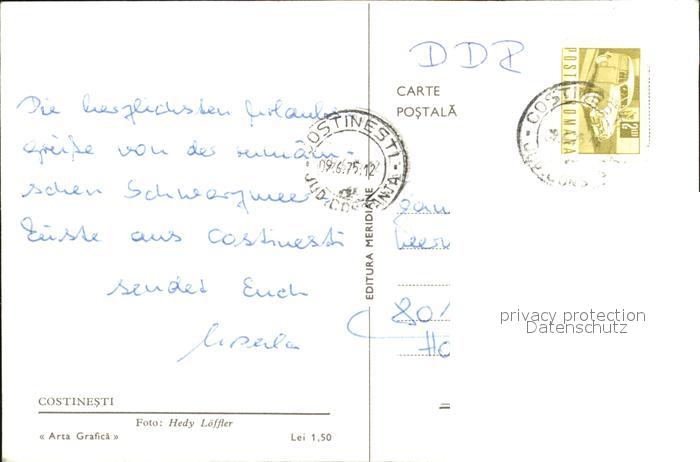 Die herzlichsten Urlaubs
grüße von der rumäni-
schen Schwarzmeer
Küste aus Costinesti
sendet Euch
Ursula
COSTINEȘTI
Foto: Hedy Löffler
« Arta Grafică »
Lei 1,50
EDITURA MERIDIANE
COSTINEȘTI
09.6.75.12
JUD. CONSTANȚA
DDR
CARTE
POȘTALĂ
POSTA ROMANA
COSTINE
JUD. CONS
Fam
801
Ho
privacy protection
Datenschutz